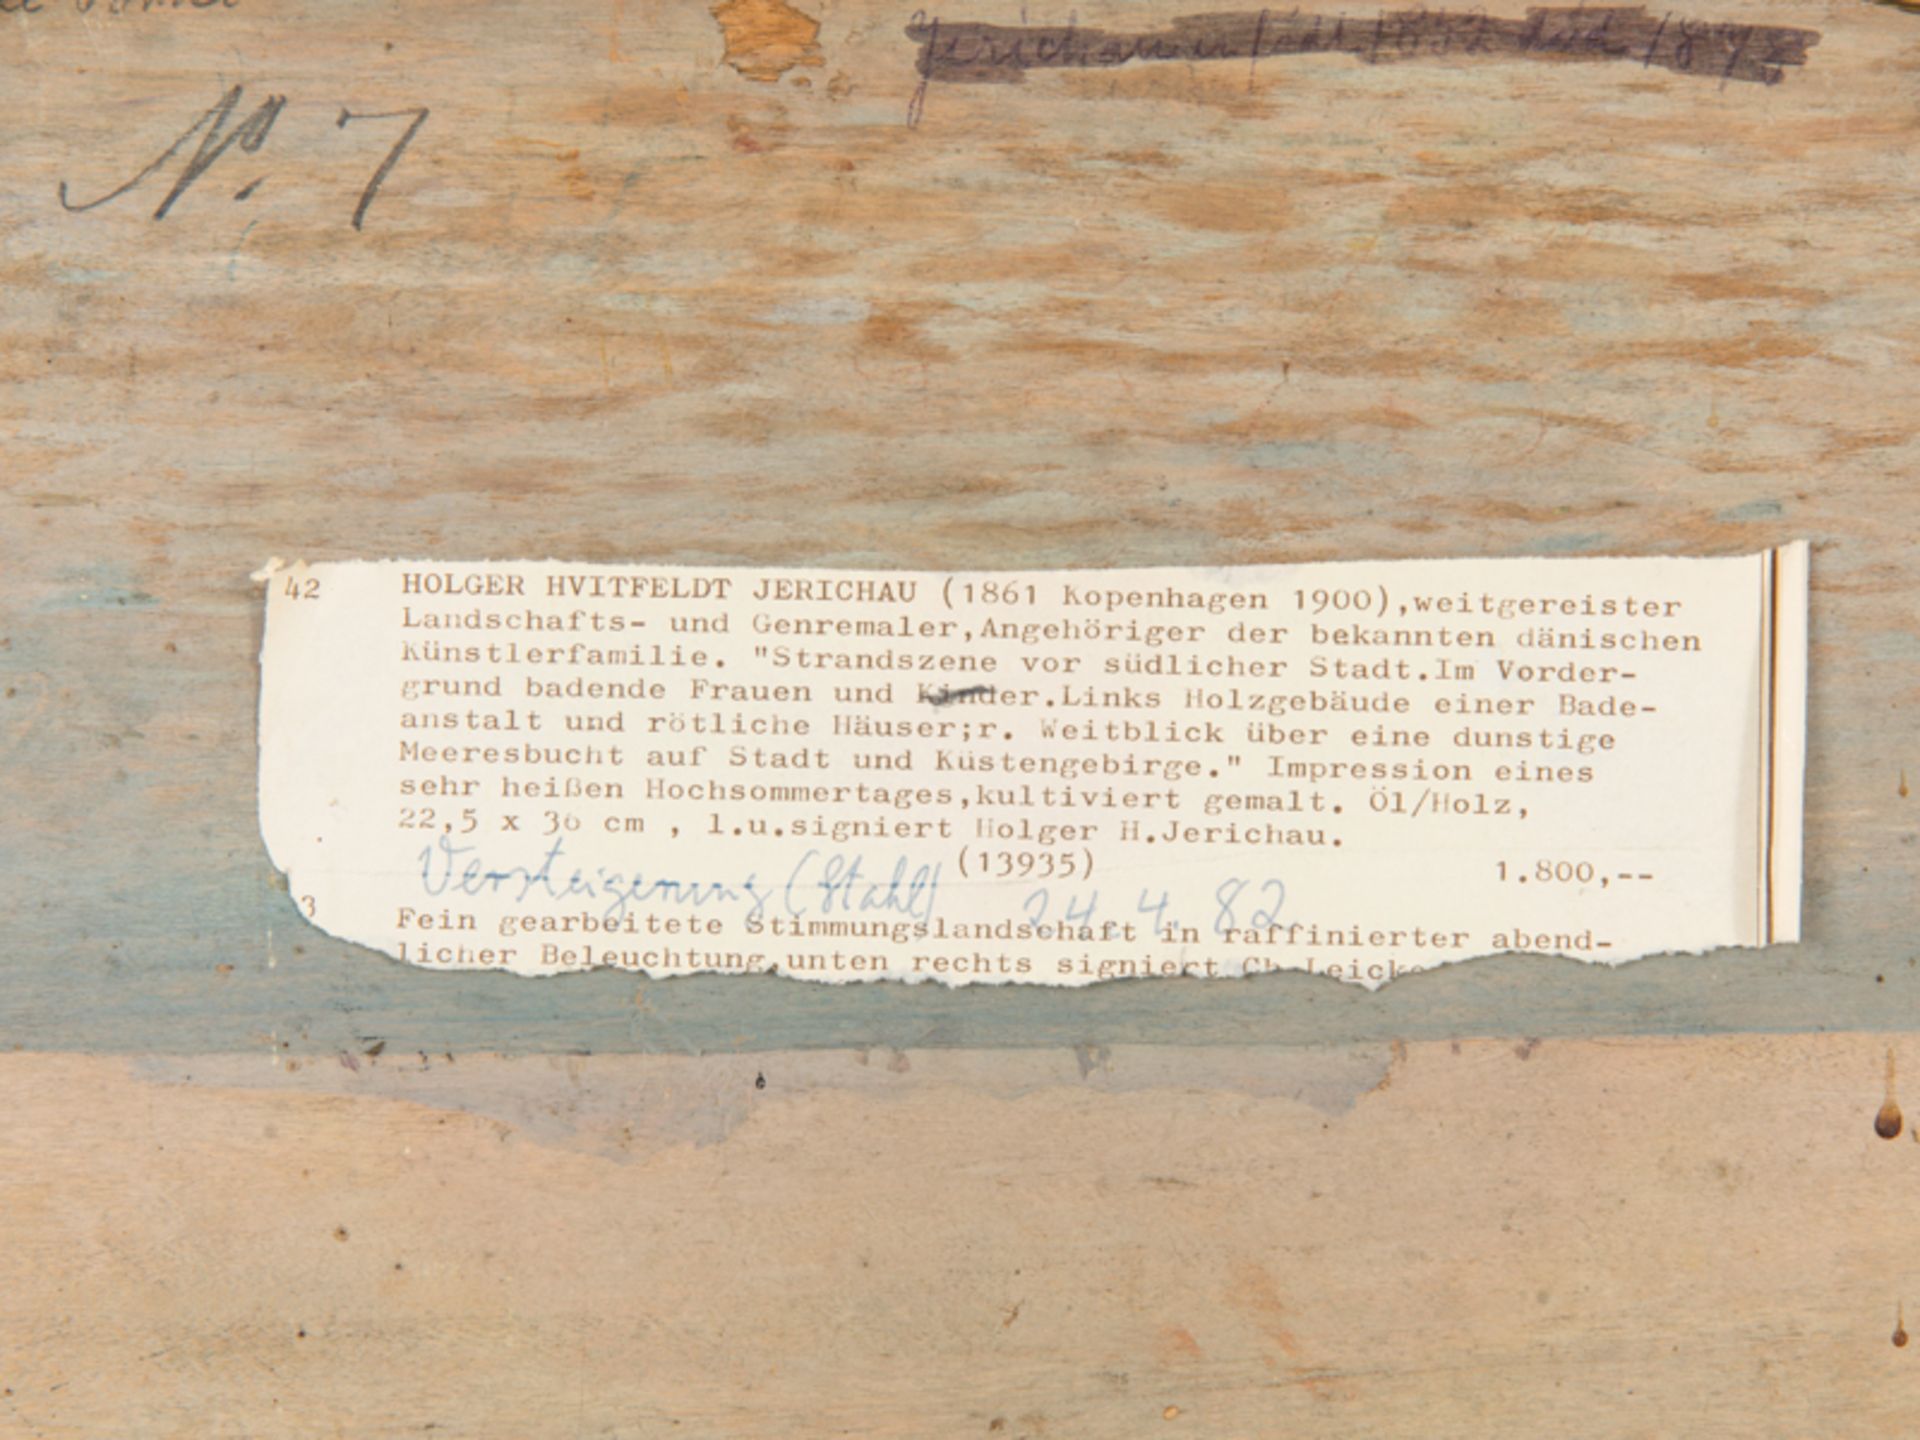 Jerichau født 1852 død
No. 7
42 HOLGER HVITFELDT JERICHAU (1861 Kopenhagen 1900),weitgereister
Landschafts- und Genremaler,Angehöriger der bekannten dänischen
Künstlerfamilie. "Strandszene vor südlicher Stadt.Im Vorder-
grund badende Frauen und Kinder.Links Holzgebäude einer Bade-
anstalt und rötliche Häuser;r. Weitblick über eine dunstige
Meeresbucht auf Stadt und Küstengebirge." Impression eines
sehr heißen Hochsommertages,kultiviert gemalt. Öl/Holz,
22,5 x 36 cm , l.u.signiert Holger H.Jerichau.
(13935) 1.800,--
Versteigerung (Stahl) 24. 4. 82.
3 Fein gearbeitete Stimmungslandschaft in raffinierter abend-
licher Beleuchtung,unten rechts signiert Ch.Leick